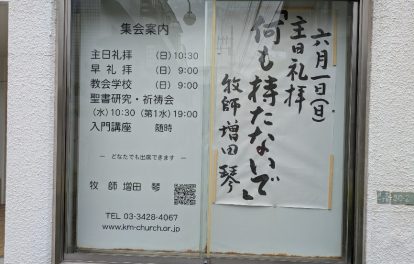 集会案内
主日礼拝 (日) 10:30
早礼拝 (日) 9:00
教会学校 (日) 9:00
聖書研究・祈祷会
(水) 10:30 (第1水) 19:00
入門講座 随時
― どなたでも出席できます ―
牧師 増田 琴
TEL 03-3428-4067
www.km-church.or.jp
六月一日(日)
主日礼拝
「何も持たないで」
牧師 増田 琴